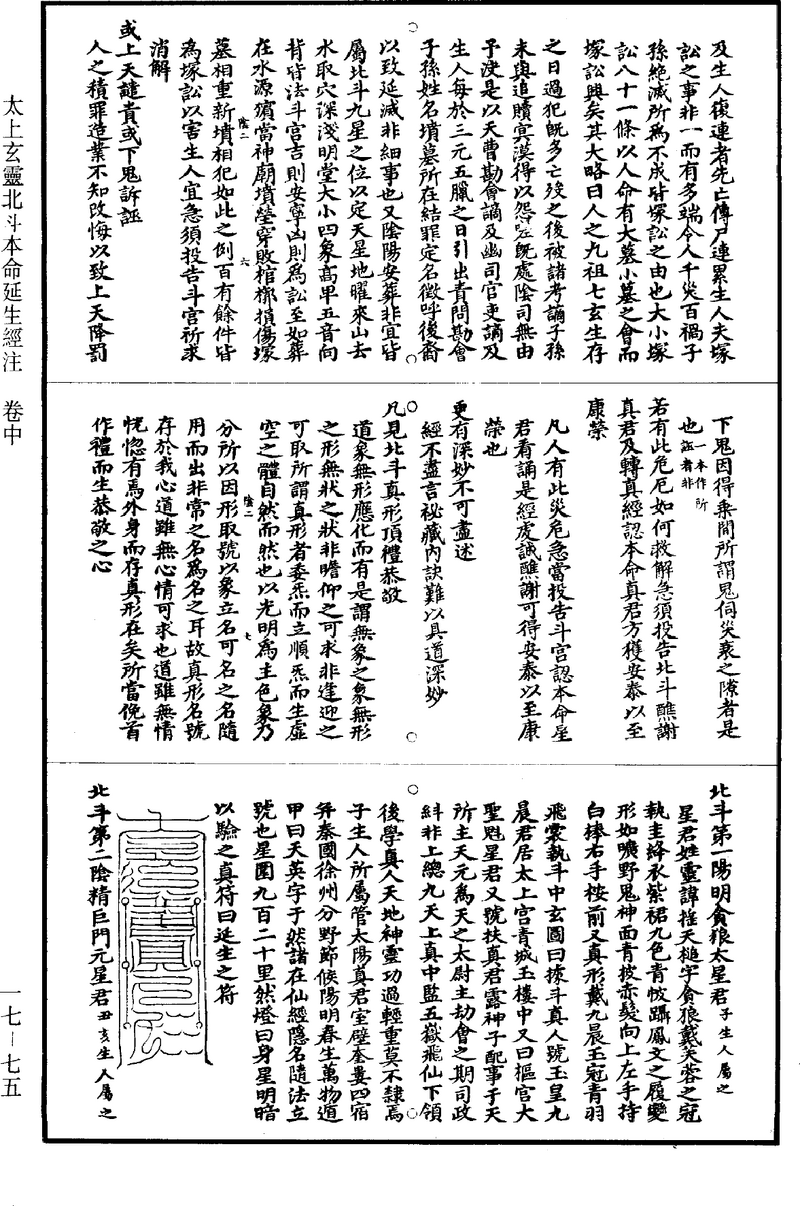 太上玄靈北斗本命延生經注　卷中
一七－七五
及生人復連者先亡傳尸連累生人夫塚
訟之事非一而有多端令人千災百禍子
孫絶滅所為不成皆塚訟之由也大小塚
訟八十一條以人命有大墓小墓之會而
塚訟興矣其大略曰人之九祖七玄生存
之日過犯旣多亡歿之後被諸考謫子孫
未與追贖冥漠得以怨嗟旣處陰司無由
予決是以天曹勘會謫及幽司官吏謫及
生人每於三元五臘之日引出責問勘會
子孫姓名墳墓所在結罪定名徵呼後裔
以致延滅非細事也又陰陽安葬非宜皆
屬北斗九星之位以定天星地曜來山去
水取穴深淺明堂大小四象高卑五音向
背皆法斗宫吉則安寧凶則為訟至如葬
在水源濱當神廟墳塋穿敗棺槨損傷塚
墓相重新墳相犯如此之例百有餘件皆
為塚訟以害生人宜急須投告斗宫祈求
消解
或上天譴責或下鬼訴誣
人之積罪造業不知改悔以致上天降罰
下鬼因得乘間所謂鬼伺災衰之隙者是
也一本作所誣者非
若有此危厄如何救解急須投告北斗醮謝
真君及轉真經認本命真君方獲安泰以至
康榮
凡人有此災危急當投告斗宫認本命星
君看誦是經虔誠醮謝可得安泰以至康
榮也
更有深妙不可盡述
經不盡言祕藏內訣難以具道深妙
凡見北斗真形頂禮恭敬
道象無形應化而有是謂無象之象無形
之形無狀之狀非瞻仰之可求非逢迎之
可取所謂真形者委炁而立順炁而生虛
空之體自然而然也以光明為主色象乃
分所以因形取號以象立名可名之名隨
用而出非常之名為名之耳故真形名號
存於我心道雖無心情可求也道雖無情
恍惚有焉外身而存真形在矣所當俛首
作禮而生恭敬之心
北斗第一陽明貪狼太星君子生人屬之
星君姓靈諱搖天槌字貪狼戴芙蓉之冠
執圭絳衣紫裙九色青帔躡鳳文之履變
形如曠野鬼神面青披赤髮向上左手持
白棒右手按前又真形戴九晨玉冠青羽
飛裳執斗中玄圖曰據斗真人號玉皇九
晨君居太上宫青城玉樓中又曰樞宫大
聖魁星君又號扶真君露神子配事于天
所主天元為天之太尉主劫會之期司政
糾非上總九天上真中監五嶽飛仙下領
後學真人天地神靈功過輕重莫不隸焉
子生人所屬管太陽真君室壁奎婁四宿
并秦國徐州分野節候陽明春生萬物遁
甲曰天英字于然諸在仙經隱名隨法立
號也星圍九百二十里然燈曰身星明暗
以驗之真符曰延生之符
北斗第二陰精巨門元星君丑亥生人屬之
陰二
六
陰二
七